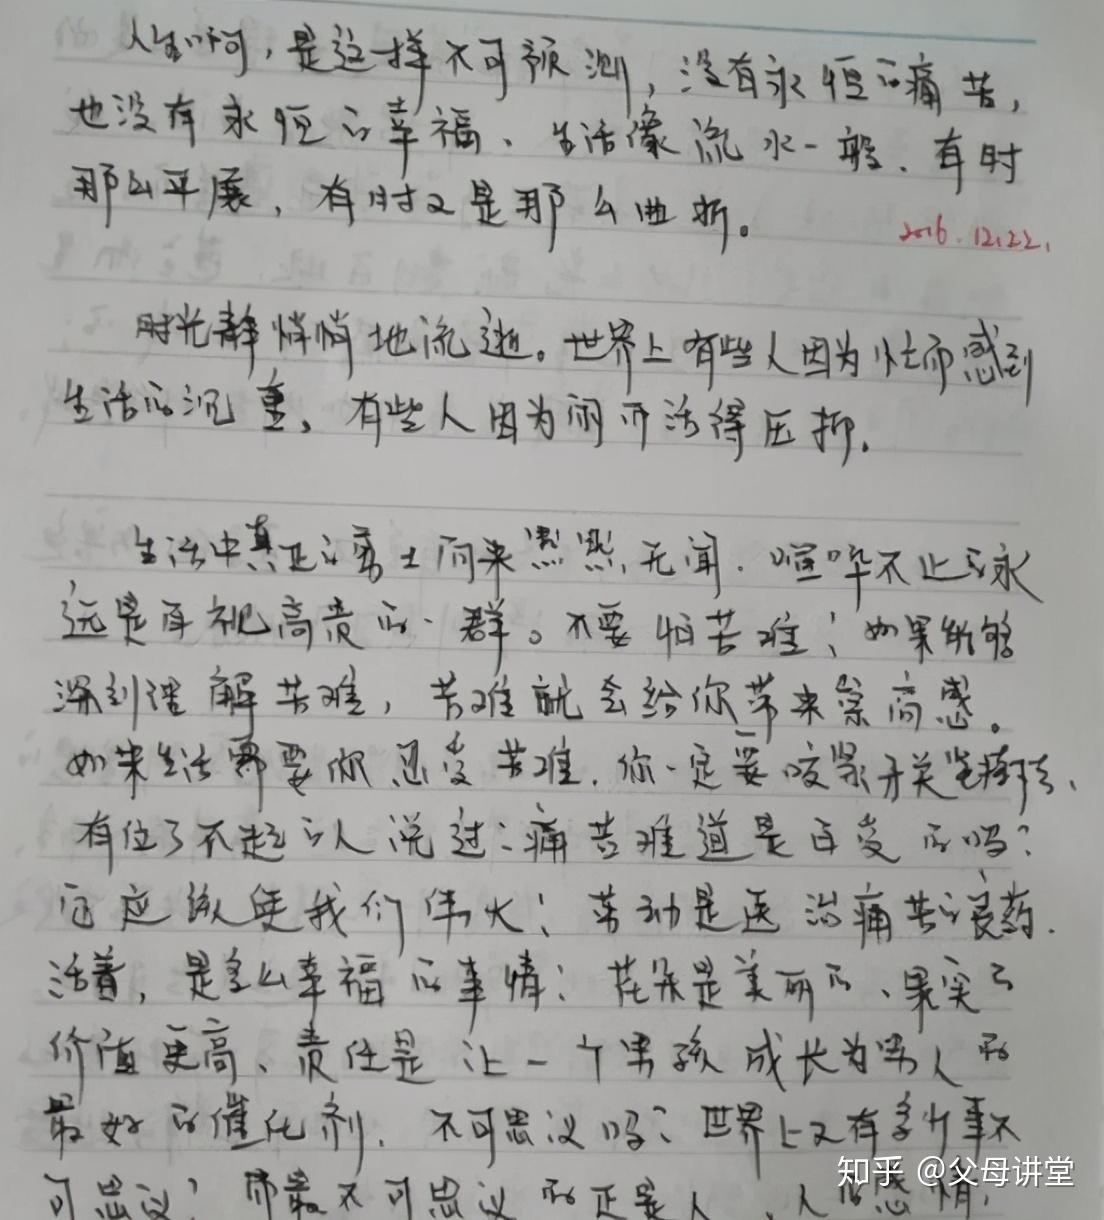 人生啊，是这样不可预测，没有永恒的痛苦，
也没有永恒的幸福、生活像流水一般、有时
那么平展，有时又是那么曲折。
2016.12.22.
时光静悄悄地流逝。世界上有些人因为忙而感到
生活的沉重，有些人因为闲而活得压抑。
生活中真正的勇士向来默默无闻．喧哗不止的永
远是自视高贵的一群。不要怕苦难！如果能够
深刻理解苦难，苦难就会给你带来崇高感。
如果生活需要你忍受苦难．你一定要咬紧牙关坚持下去、
有位了不起的人说过：痛苦难道是白受的吗？
它应该使我们伟大！劳动是医治痛苦的良药．
活着，是多么幸福的事情！花朵是美丽的、果实的
价值更高、责任是让一个男孩成长为男人的
最好的催化剂．不可思议吗？世界上又有多少事不
可思议！而最不可思议的正是人、人的感情！
知乎 @父母讲堂